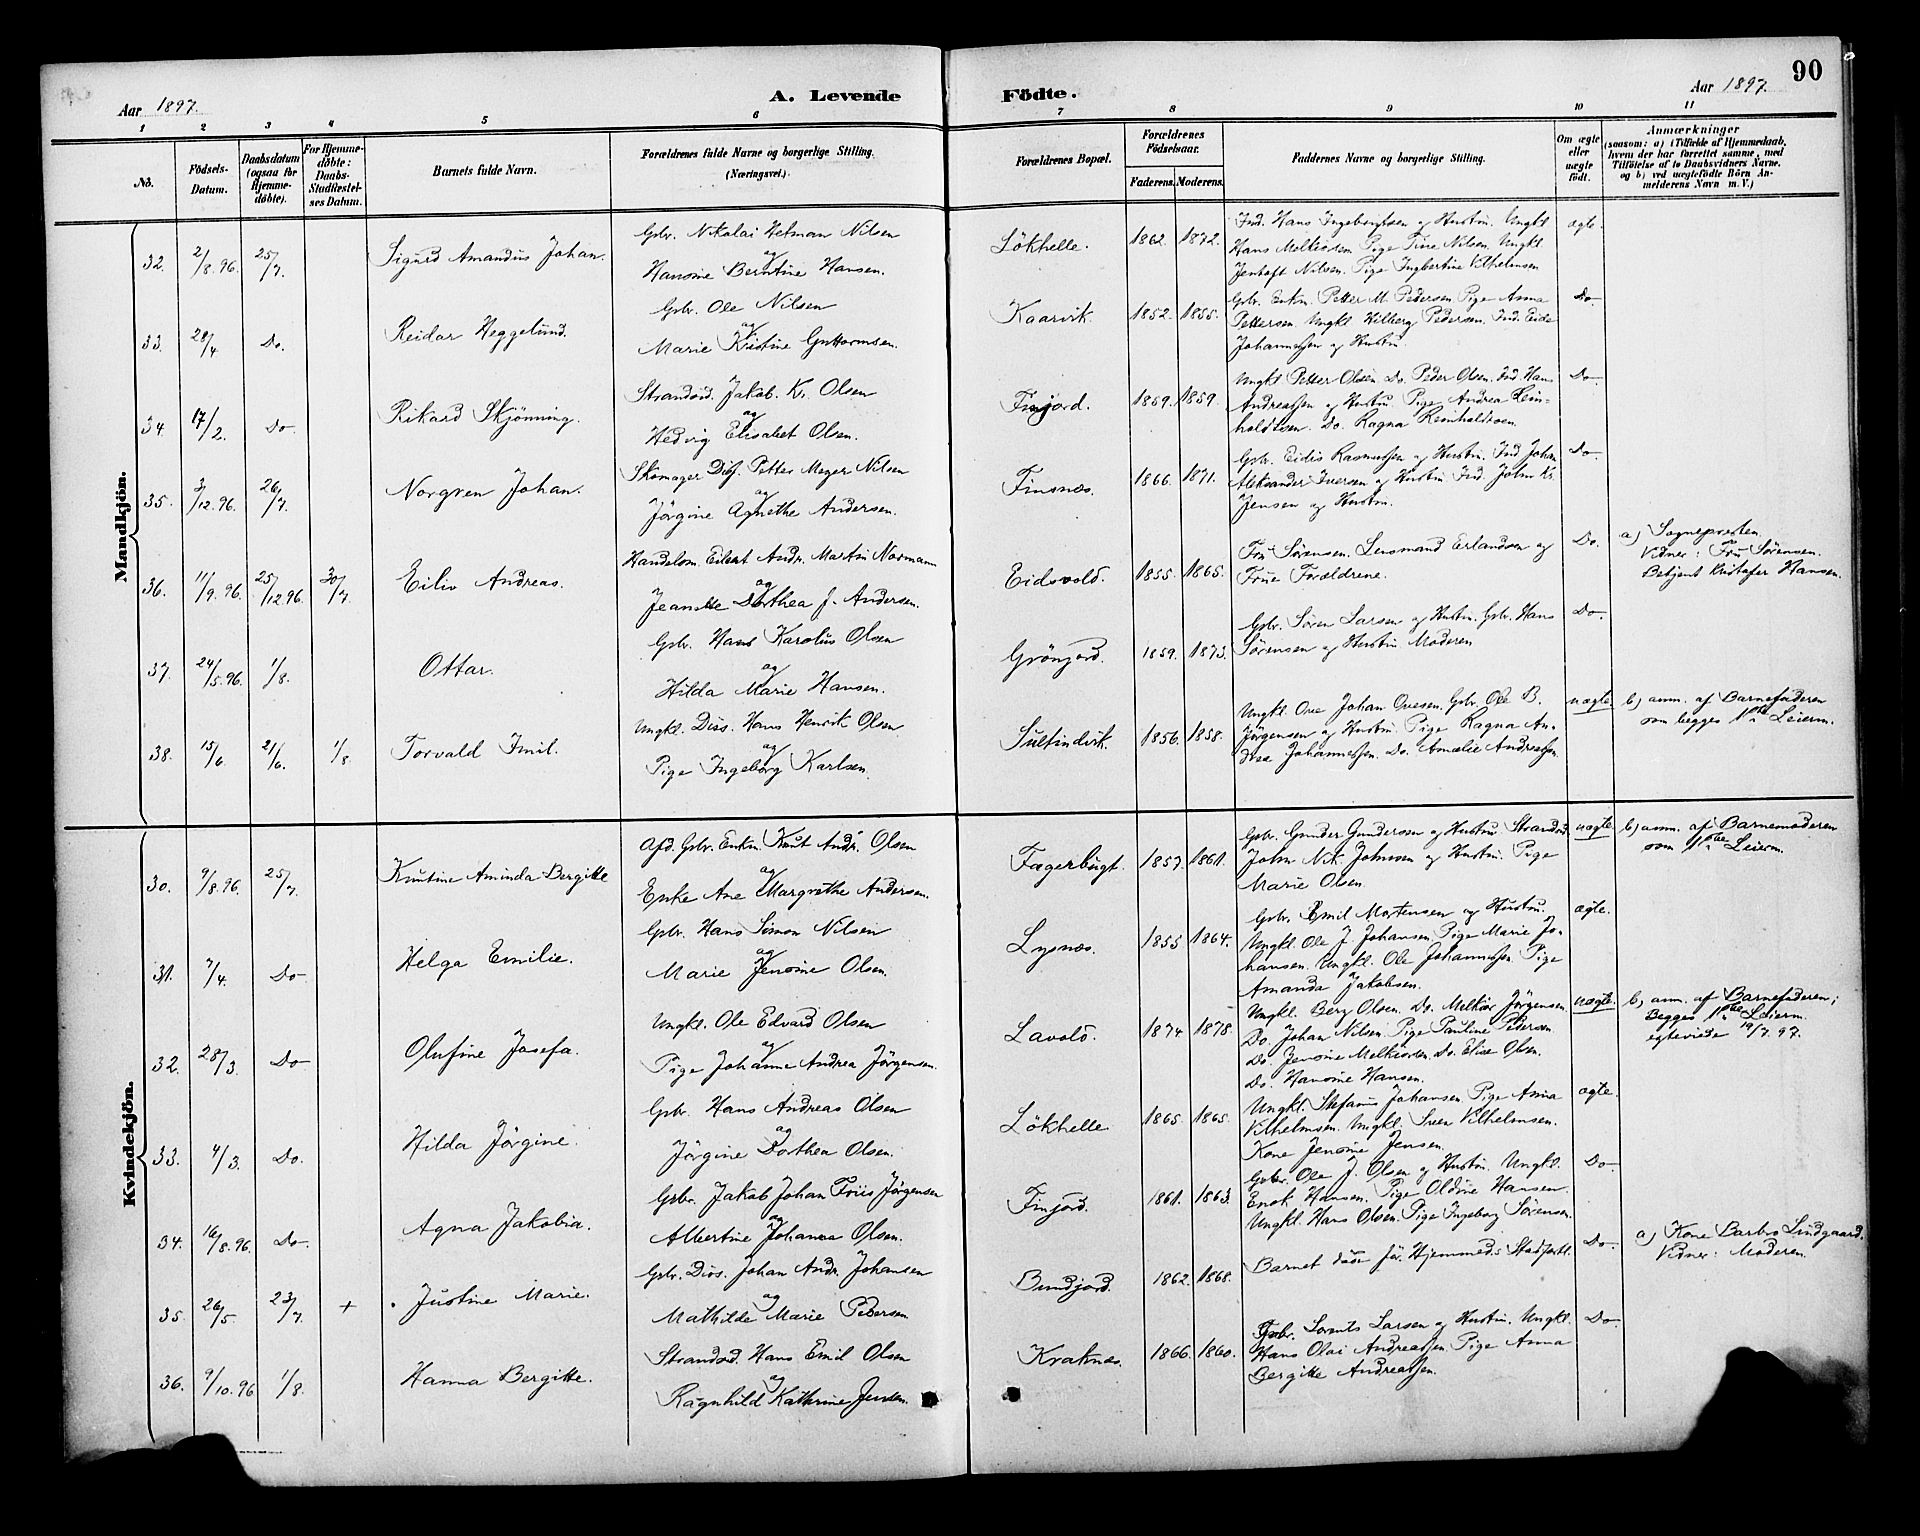 Aar 1897.
A. Levende Födte.
Aar 1897.
90
1 2 3 4 5 6 7 8 9 10 11
No.
Födsels-
Datum.
Daabsdatum
(ogsaa for
Hjemme-
döbte).
For Hjemme-
döbte:
Daabs-
Stadfæstel-
ses Datum.
Barnets fulde Navn.
Forældrenes fulde Navne og borgerlige Stilling.
(Næringsvei.)
Forældrenes Bopæl.
Forældrenes
Födselsaar.
Faderens. Moderens.
Faddernes Navne og borgerlige Stilling.
Om ægte
eller
uægte
födt.
Anmærkninger
(saasom: a) i Tilfælde af Hjemmedaab,
hvem der har forrettet samme, med
Tilföielse af to Daabsvidners Navne,
og b) ved uægtefödte Börn An-
melderens Navn m. V.)
Mandkjön.
32. 2/8.96. 25/7. Sigurd Amandus Johan.
Gbr. Nikolai Hetman Nilsen
og
Hansine Berntine Hansen.
Lökhelle. 1862. 1872.
Ind. Hans Ingebrigtsen og Hustru. Ungkl.
Hans Melkiorsen Pige Tine Nilsen. Ungkl.
Jentoft Nilsen. Pige Ingbertine Vilhelmsen
ægte.
33. 28/4. Do. Reidar Heggelund.
Gbr. Ole Nilsen
og
Marie Kristine Guttormsen.
Kaarvik. 1852. 1855.
Gbr. Enkm. Petter M. Pedersen Pige Anna
Pettersen. Ungkl Hilberg Pedersen. Ind. Eide
Johannessen og Hustru.
Do.
34. 17/2. Do. Rikard Skjönning.
Strandsid. Jakob Kr. Olsen
og
Hedvig Elisabet Olsen.
Finjord. 1859. 1859.
Ungkl Petter Olsen Do. Peder Olsen. Ind. Hans
Andreassen og Hustru. Pige Andrea Rein-
holdtsen. Do. Ragna Reinholdtsen.
Do.
35. 3/12.96. 26/7. Norgren Johan.
Skomager Diss. Petter Meyer Nilsen
og
Jörgine Agnethe Andersen.
Finsnes. 1866. 1871.
Gbr. Eidis Rasmussen og Hustru. Ind Johan
Aleksander Iversen og Hustru Ind. John Kr.
Jensen og Hustru.
Do.
36. 11/9.96. 25/12.96. 30/7. Eiliv Andreas.
Handelsm. Eilert Andr. Martin Normann
og
Jeanette Dorthea J. Andersen.
Eidsvold. 1855. 1865.
Fru Sörensen. Lensmand Erlandsen og
Frue Forældrene.
Do.
a) Sognepresten.
Vidner: Fru Sörensen.
og
Betjent Kristofer Hansen.
37. 24/5.96. 1/8. Ottar.
Gbr. Hans Karolus Olsen
og
Hilda Marie Hansen.
Grönjord. 1859. 1873.
Gbr. Sören Larsen og Hustru. Gbr. Hans
Sörensen og Hustru Moderen
Do.
38. 15/6. 21/6. 1/8. Torvald Imil.
Ungkl. Diss. Hans Henrik Olsen
og
Pige Ingeborg Karlsen.
Sultindvik. 1856. 1858.
Ungkl. Ove Johan Ovesen. Gbr. Ole B.
Jörgensen og Hustru. Pige Ragna An-
drea Johannessen. Do. Amalie Andreassen.
uægte.
b) anm. af Barnefaderen
som begges 1ste Leierm.
Kvindekjön.
30. 9/8.96. 25/7. Kristine Aminda Bergitte
Afd. Gbr. Enkm. Knut Andr. Olsen
og
Enke Ane Margrethe Andersen.
Fagerbugt. 1857. 1861.
Gbr. Gunder Gundersen og Hustru. Strandsid.
John Nik. Johnsen og Hustru. Pige
Marie Olsen.
uægte.
b) anm. af Barnemoderen
som 1ste Leierm.
31. 7/4. Do Helga Emilie.
Gbr. Hans Simon Nilsen
og
Marie Jensine Olsen.
Lysnes. 1855 1864.
Gbr. Emil Mortensen og Hustru.
Ungkl. Ole J Johansen. Pige Marie Jo-
hansen. Ungkl. Ole Johannessen. Pige
Amanda Jakobsen.
ægte.
32. 28/3. Do Olufine Josefa.
Ungkl. Ole Edvard Olsen
og
Pige Johanne Andrea Jörgensen.
Lavold. 1874 1878
Ungkl. Berg Olsen. Do. Melkior Jörgensen
Do. Johan Nilsen. Pige Pauline Pedersen
Do. Jensine Melkiorsen. Do. Elise Olsen.
Do. Hansine Hansen.
uægte.
b) anm. af Barnefaderen;
Begges 1ste Leierm.
egteviede 19/7.97.
33. 4/3. Do. Hilda Jörgine.
Gbr. Hans Andreas Olsen
og
Jörgine Dorthea Olsen.
Lökhelle 1865. 1865.
Ungkl. Stefanus Johansen Pige Anna
Vilhelmsen. Ungkl. Sven Vilhelmsen.
Kone Jensine Jensen.
ægte.
34. 16/8.96. Do. Agna Jakobia.
Gbr. Jakob Johan Friis Jörgensen
og
Albertine Johanna Olsen.
Finjord. 1861. 1863.
Gbr. Ole J. Olsen og Hustru. Ungkl.
Enok Hansen. Pige Oldine Hansen.
Ungkl. Hans Olsen. Pige Ingeborg Sörensen.
Do
35. 26/5. 23/7. + . Justine Marie.
Gbr. Diss. Johan Andr. Johansen
og
Mathilde Marie Pedersen
Bundjord. 1862. 1868.
Barnet döde för Hjemmed.s Stadfæstl.
Do.
a) Kone Barbro Lindgaard.
Vidner: Moderen.
36. 9/10.96 1/8. Hanna Bergitte.
Strandsid. Hans Emil Olsen
og
Ragnhild Kathrine Jensen.
Kraknes. 1866. 1860.
Gbr. Lorents Larsen og Hustru. Ungkl.
Hans Olai Andreassen. Pige Anna
Bergitte Andreassen.
Do.